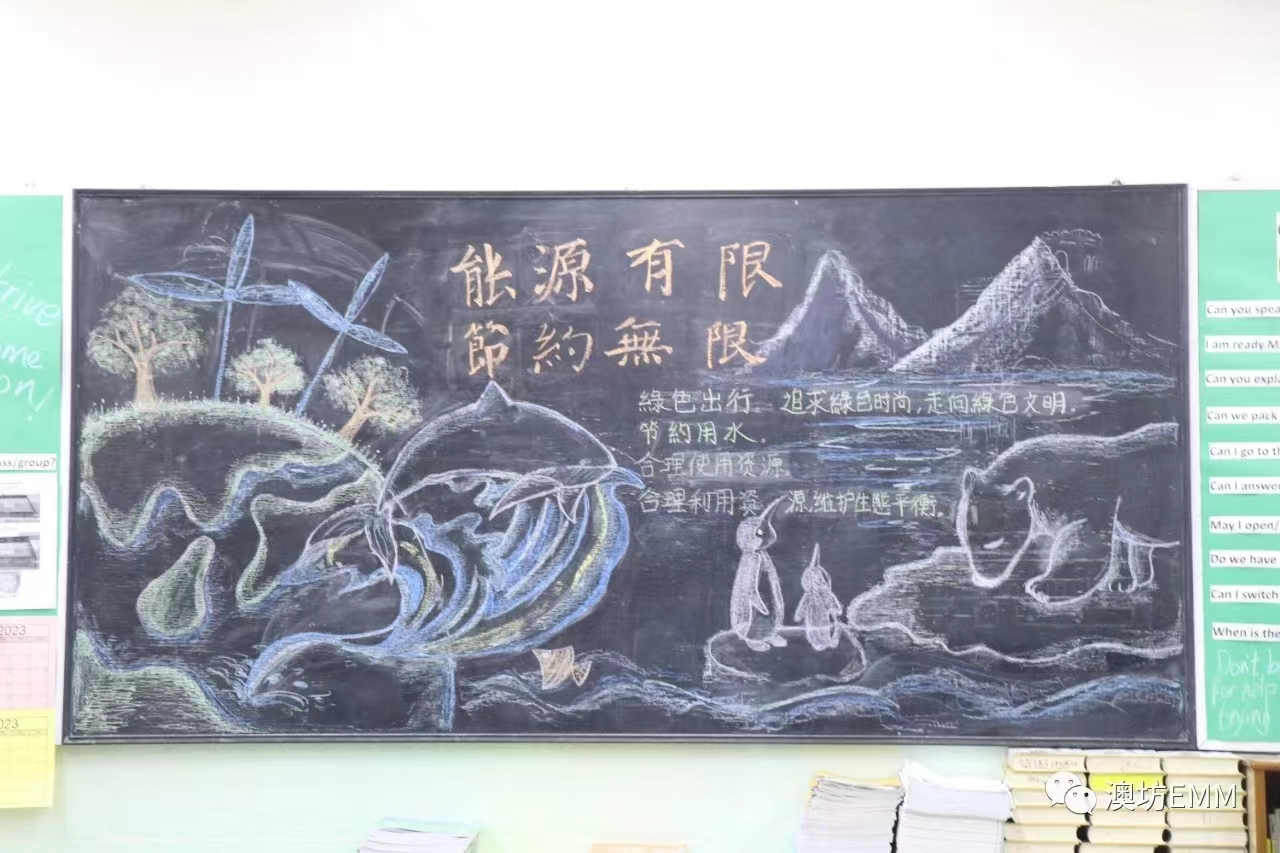 能源有限
節約無限
綠色出行 追求綠色时尚,走向綠色文明.
节約用水.
合理使用资源.
合理利用资 源,维护生態平衡.
ome
on!
ss/group?
2023
2023
Can you spea
I am ready.M
Can you expla
Can we pack
Can I go to th
Can I answer
May I open/
Do we have
Can I switch
When is the
Don't b
for help
trying
澳坊EMM